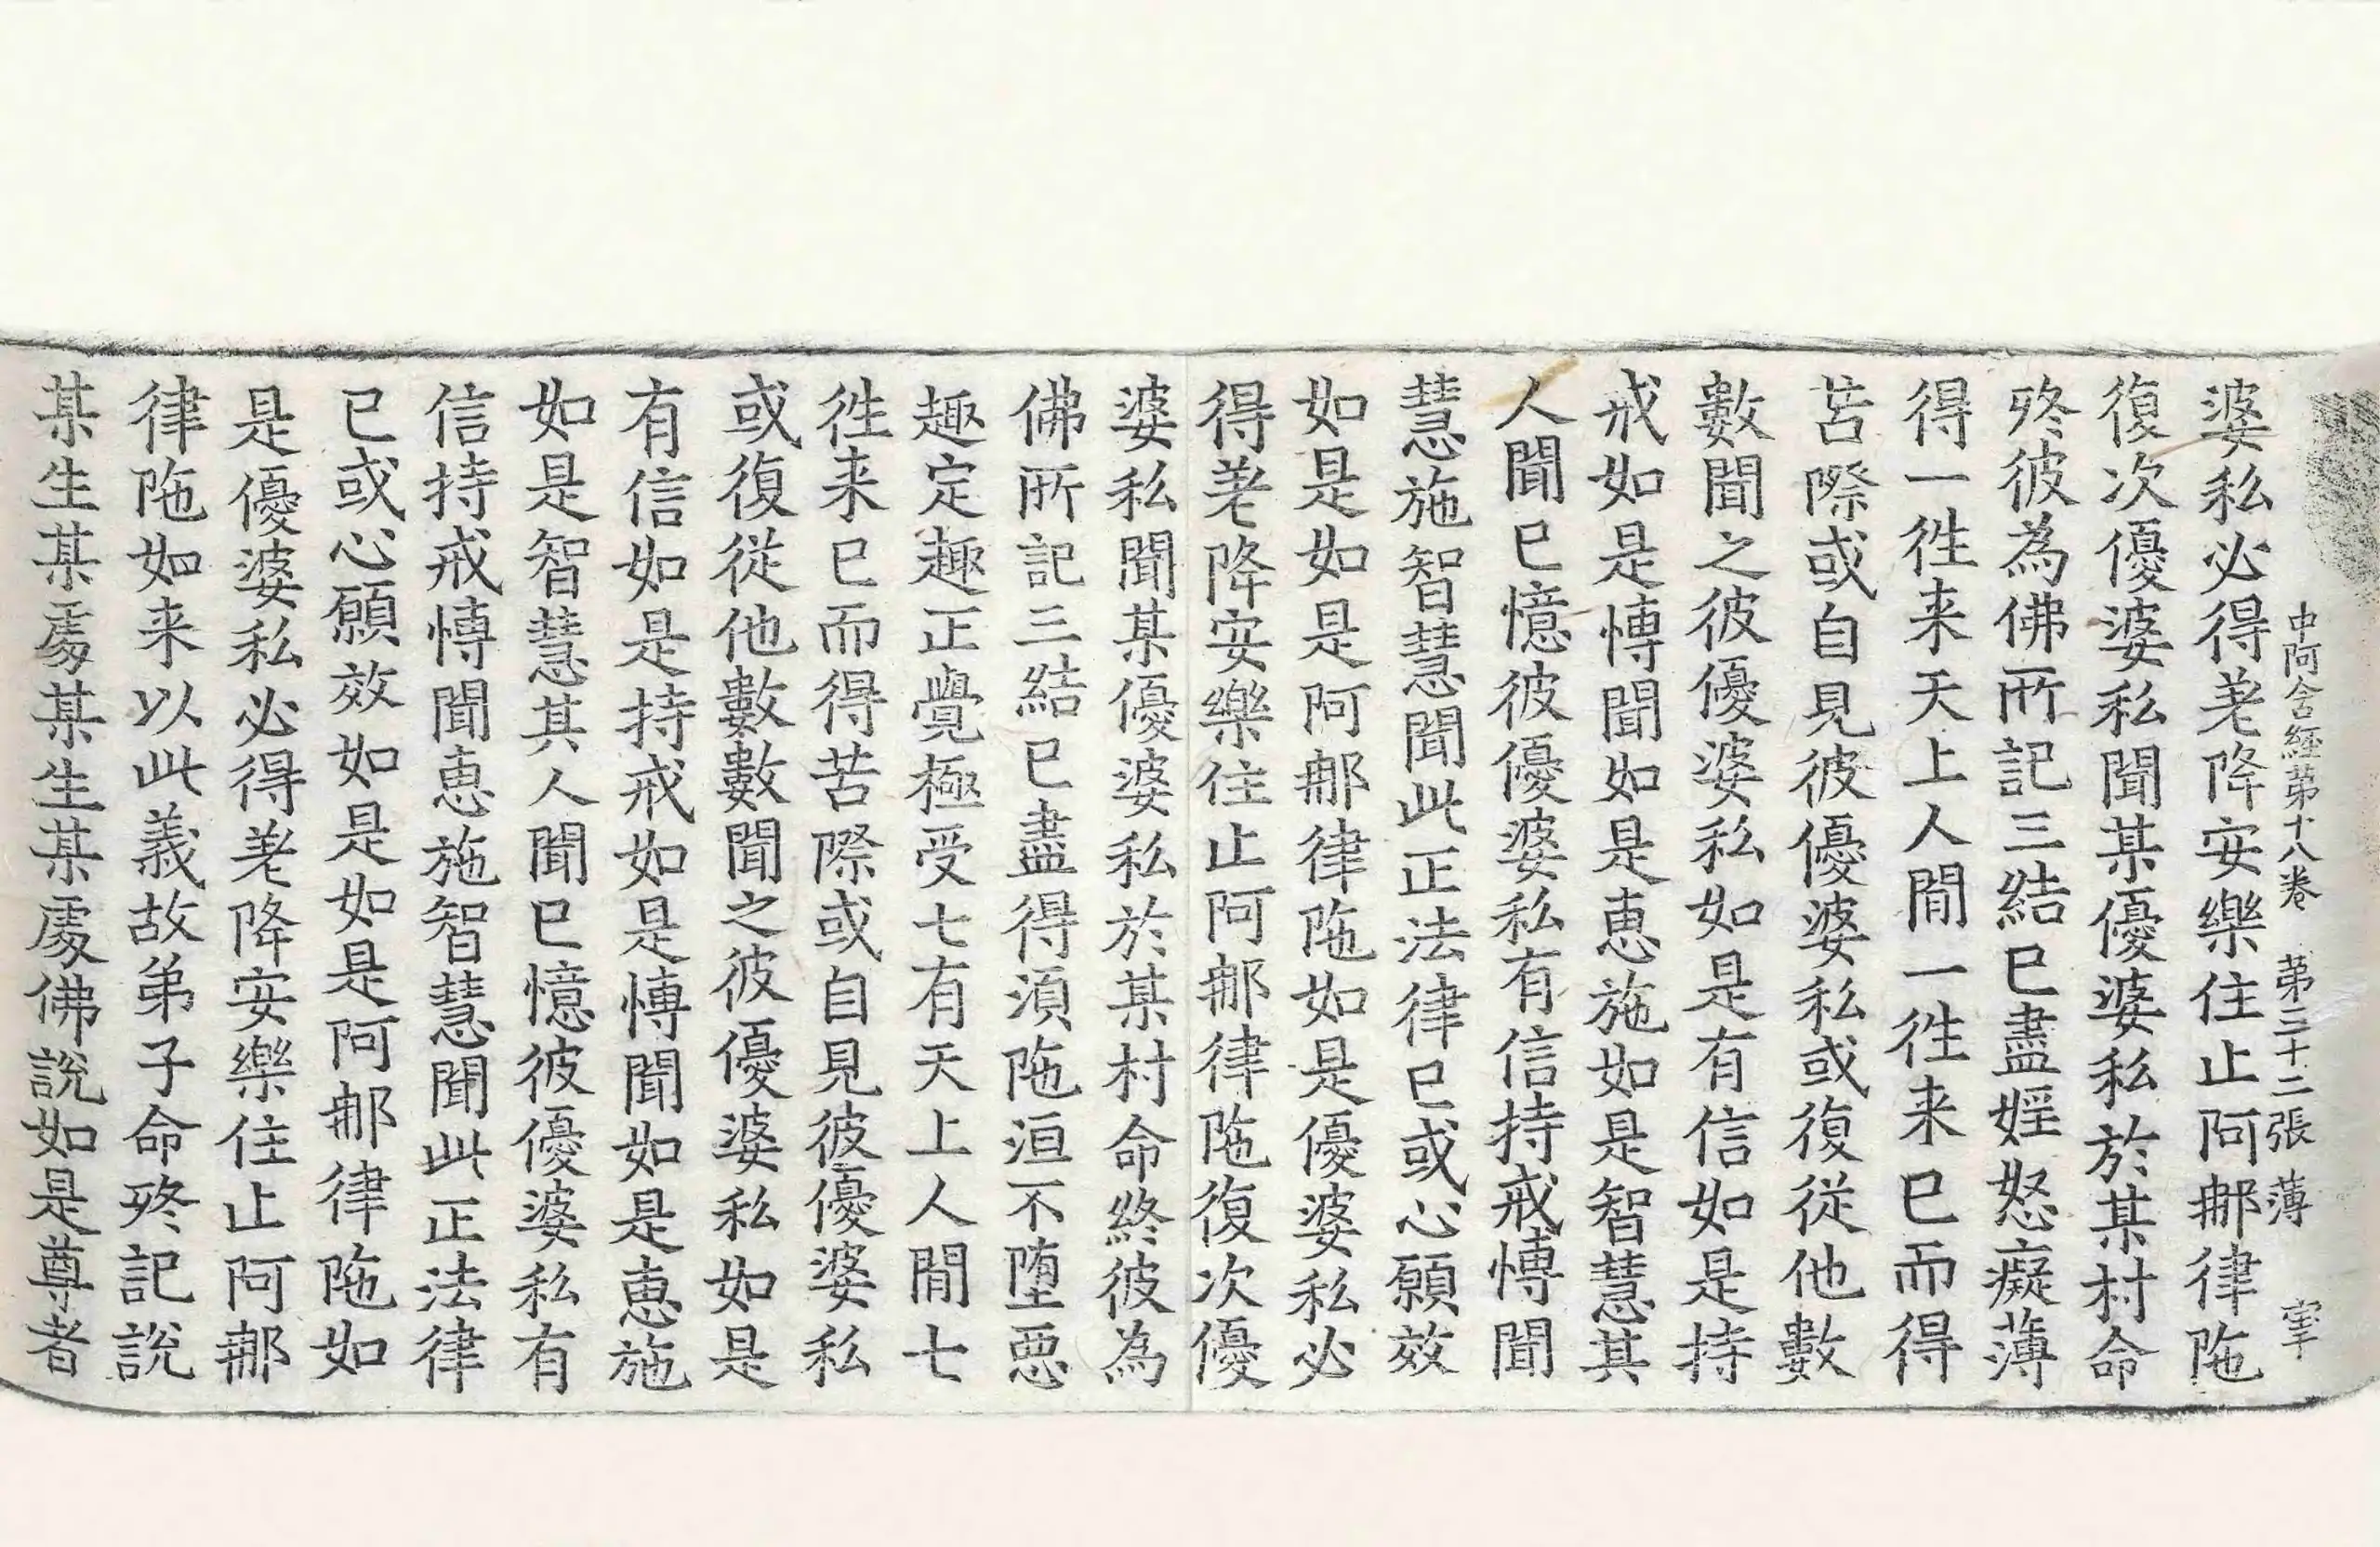 中阿含經第十八卷 第三十二張 薄 宰
婆私必得差降安樂住止阿那律陁
復次優婆私聞某優婆私於某村命
終彼為佛所記三結已盡婬怒癡薄
得一徃来天上人間一徃来已而得
苦際或自見彼優婆私或復從他數
數聞之彼優婆私如是有信如是持
戒如是博聞如是惠施如是智慧其
人聞已憶彼優婆私有信持戒博聞
慧施智慧聞此正法律已或心願效
如是如是阿那律陁如是優婆私必
得差降安樂住止阿那律陁復次優
婆私聞某優婆私於某村命終彼為
佛所記三結已盡得湏陁洹不墮惡
趣定趣正覺極受七有天上人間七
徃来已而得苦際或自見彼優婆私
或復從他數數聞之彼優婆私如是
有信如是持戒如是博聞如是惠施
如是智慧其人聞已憶彼優婆私有
信持戒博聞惠施智慧聞此正法律
已或心願效如是如是阿那律陁如
是優婆私必得差降安樂住止阿那
律陁如来以此義故弟子命終記說
某生某處某生某處佛說如是尊者